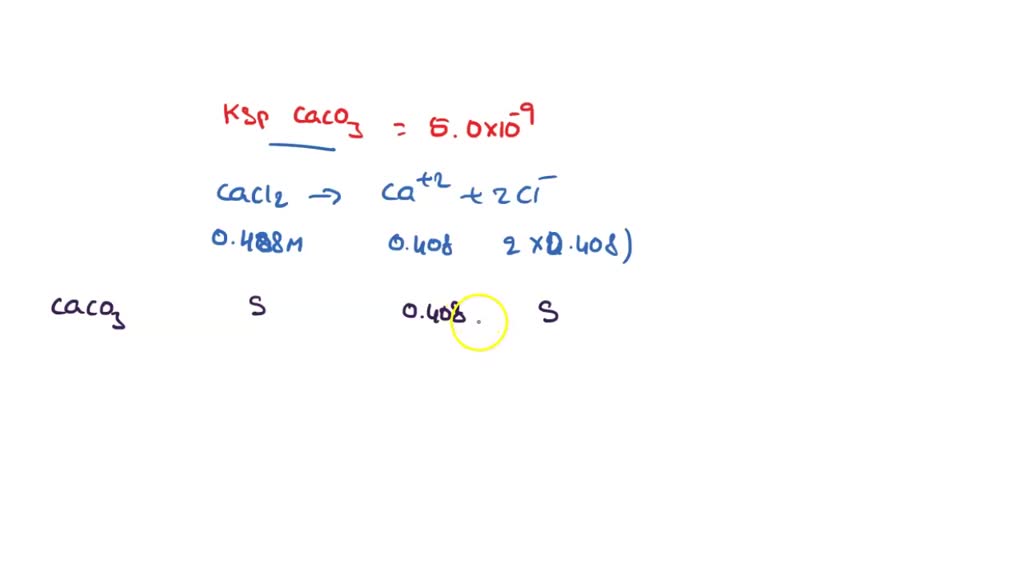 Ksp CaCO3 = 5.0x10^-9
CaCl2 → Ca^+2 + 2Cl^-
0.408M 0.408 2x0.408)
CaCO3 S 0.408 S